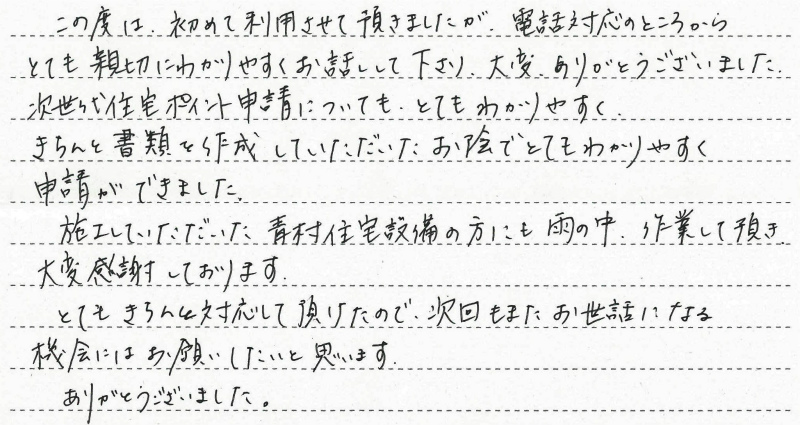 この度は、初めて利用させて頂きましたが、電話対応のところから
とても親切にわかりやすくお話しして下さり、大変、ありがとうございました。
次世代住宅ポイント申請についても、とてもわかりやすく、
きちんと書類を作成していただいたお陰でとてもわかりやすく
申請ができました。
施工していただいた青村住宅設備の方にも雨の中、作業して頂き
大変感謝しております。
とてもきちんと対応して頂けたので、次回もまたお世話になる
機会にはお願いしたいと思います。
ありがとうございました。